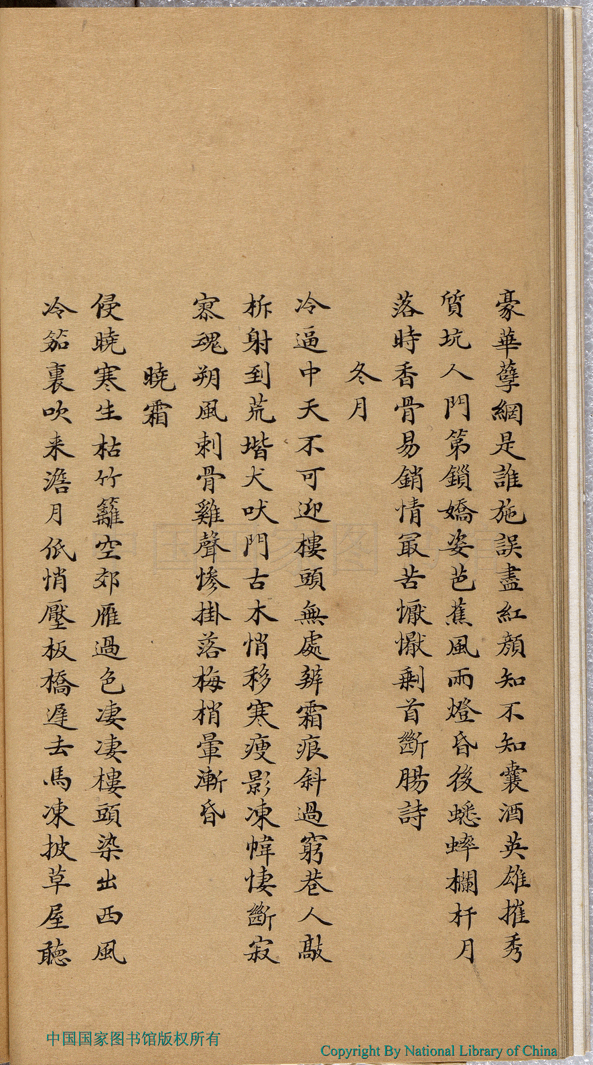 豪華孽網是誰施誤盡紅顏知不知囊酒英雄摧秀
質坑人門第鎖嬌姿芭蕉風雨燈昏後蟋蟀欄杆月
落時香骨易銷情冣苦懨懨剩首斷腸詩
冬月
冷逼中天不可迎樓頭無處辨霜痕斜過窮巷人敲
柝射到荒堦犬吠門古木悄移寒瘦影凍幃悽斷寂
寥魂朔風刺骨雞聲慘掛落梅梢暈漸昏
曉霜
侵曉寒生枯竹籬空郊雁過色凄凄樓頭染出西風
冷笳裏吹来澹月低悄壓板橋遲去馬凍披草屋聽
中国国家图书馆版权所有
Copyright By National Library of China